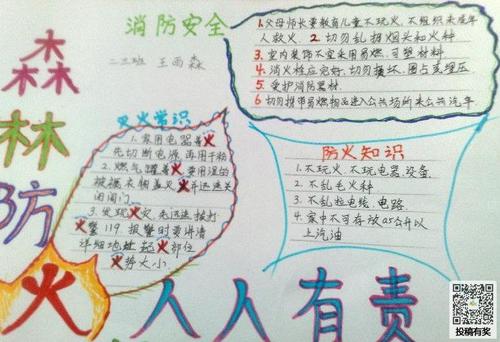 消防安全
二三班 王雨森
1.父母师长要教育儿童不玩火、不组织未成年
人救火、2.切勿乱扔烟头和火种
3.室内装饰不宜采用易燃、可塑材料
4.消火栓应完好、切勿损坏、圈占查埋压
5.爱护消防器材
6.切勿携带易燃物品进入公共场所乘公共汽车
灭火常识
1.家用电器着火
先切断电源再用干粉
2.燃气罐着火要用湿的
被褥衣物盖灭火并迅速关
闭阀门
3.发现火灾、先迅速拨打
火警119 报警时要讲清
详细地址起火部位
火势大小
防火知识
1.不玩火、不玩电器设备
2.不乱丢火种
3.不乱拉电线、电路
4.家中不可存放0.5公升以
上汽油
森
林
防
火
人人有责
投稿有奖